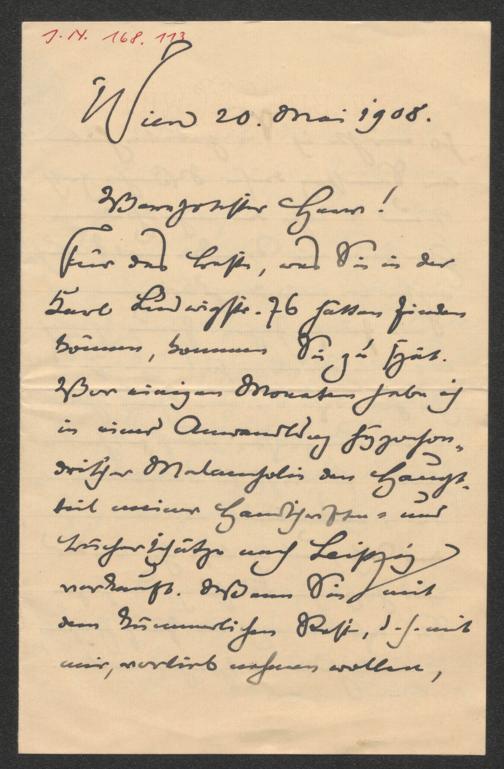 J.N. 168.113
Wien 20. Mai 1908.
Verehrtester Herr!
Für das beste, was Sie in der
Karl Ludwigstr. 76 hätten finden
können, kommen Sie zu spät.
Vor einigen Monaten habe ich
in einer Anwandlung hypochon-
drischer Melancholie den Haupt-
teil meiner Handschriften- und
Bücherschätze nach Leipzig
verkauft. Wenn Sie mit
dem kümmerlichen Rest, d.h. mit
mir, vorlieb nehmen wollen,